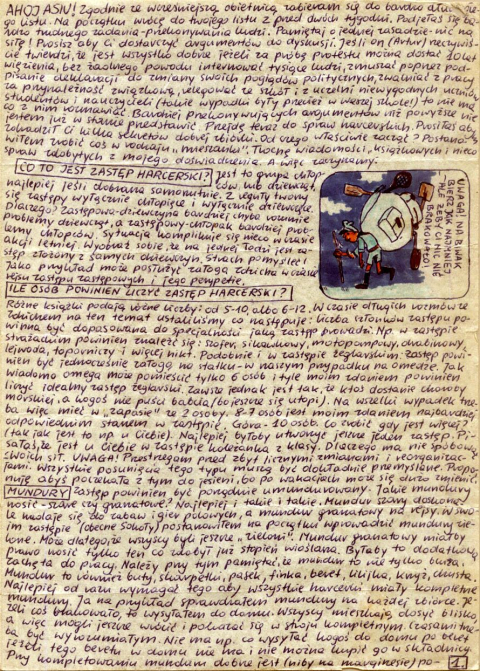 AHOJ ASIU! Zgodnie ze wcześniejszą obietnicą zabieram się do bardzo długie-
go listu. Na początku wrócę do twojego listu z przed dwóch tygodni. Podjęłaś się ba-
rdzo trudnego zadania-przekonywania ludzi. Pamiętaj o jednej zasadzie-nic na
siłę! Prosisz aby Ci dostarczyć argumentów do dyskusji. Jeśli on (Artur) rzeczywiś-
cie twierdzi, że jest wszystko dobrze jeżeli za próbę protestu można dostać 10 lat
więzienia, bez żadnego powodu internować tysiące ludzi, zmuszać poprzez pod-
pisanie deklaracji do zmiany swoich poglądów politycznych, zwalniać z pracy
za przynależność związkową, relegować ze szkół i z uczelni niewygodnych uczniów,
studentów i nauczycieli (takie wypadki były przecież w waszej szkole!) to nie ma
co z nim rozmawiać. Bardziej przekonywujących argumentów niż powyższe nie
jestem już w stanie przedstawić. Przejdę teraz do spraw harcerskich. Prosiłaś aby
zdradzić Ci kilka sekretów dobrej zbiórki. Od czego właściwie zacząć? Postano-
wiłem zrobić coś w rodzaju „mieszanki". Trochę wiadomości „książkowych" i nieco
spraw zdobytych z mojego doświadczenia. A więc zaczynamy:
CO TO JEST ZASTĘP HARCERSKI? Jest to grupa chłop-
ców, lub dziewcząt,
najlepiej jeśli dobrana samorzutnie. Z reguły tworzy
się zastępy wyłącznie chłopięce i wyłącznie dziewczęce.
Dlaczego? Zastępowa-dziewczyna bardziej chyba rozumie
problemy dziewcząt, a zastępowy-chłopak bardziej prob-
lemy chłopców. Sytuacja komplikuje się nieco w czasie
akcji letniej. Wyobraź sobie, że na jednej łodzi jest za-
stęp złożony z samych dziewczyn. Strach pomyśleć!
Jako przykład może posłużyć załoga Zdzicha w czasie
rejsu zastępu zastępowych i jego perypetie.
UWAGA! NA BIWAK
BIERZEMY TYLKO NAJPOTRZEBNIEJSZE
ALE ŻEBY NIC NIE
BRAKOWAŁO!
ILE OSÓB POWINIEN LICZYĆ ZASTĘP HARCERSKI?
Różne książki podają różne liczby: od 5-10, albo 6-12. W czasie długich rozmów ze
Zdzichem na ten temat ustaliliśmy co następuje: liczba członków zastępu po-
winna być dopasowana do specjalności jaką zastęp prowadzi. Np. w zastępie
strażackim powinien znaleźć się: szofer, sikawkowy, motopompowy, drabinowy,
lejwoda, toporniczy i więcej nikt. Podobnie i w zastępie żeglarskim: zastęp powi-
nien być jednocześnie załogą na statku-w naszym przypadku na omedze. Jak
wiadomo omega może pomieścić tylko 6 osób i tyle moim zdaniem powinien
liczyć idealny zastęp żeglarski. Zawsze jednak jest tak, że ktoś dostanie choroby
morskiej, a kogoś nie puści babcia (bo jeszcze się utopi). Na wszelki wypadek trze-
ba więc mieć w „zapasie" ze 2 osoby. 8-7 osób jest moim zdaniem najbardziej
odpowiednim stanem w zastępie. Góra-10 osób. Co zrobić gdy jest więcej?
(tak jak jest to np. u Ciebie). Najlepiej byłoby utworzyć jeszcze jeden zastęp. Pi-
sałaś, że jest u Ciebie w zastępie koleżanka z klasy. Dlaczego ma nie spróbować
swoich sił. UWAGA! Przestrzegam przed zbyt licznymi zmianami i reorganizac-
jami. Wszystkie posunięcia tego typu muszą być dokładnie przemyślane. Propo-
nuję abyś poczekała z tym do jesieni, bo po wakacjach może się dużo zmienić.
MUNDURY Zastęp powinien być porządnie umundurowany. Jakie mundury
nosić-szare czy granatowe? Najlepiej i takie i takie. Mundur szary doskona-
le nadaje się do zabaw i gier polowych, a mundur granatowy na rejsy. W swo-
im zastępie (obecne Sokoły) postanowiłem na początku wprowadzić mundury zie-
lone. Może dlatego, że wszyscy byli jeszcze „zieloni". Mundur granatowy miałby
prawo nosić tylko ten co zdobył już stopień wioślarza. Byłaby to dodatkowa
zachęta do pracy. Należy przy tym pamiętać, że mundur to nie tylko bluza.
Mundur to również buty, skarpetki, pasek, finka, beret, lilijka, krzyż, chusta.
Najlepiej od razu wymagać tego aby wszystkie harcerki miały kompletne
mundury. Ja na przykład sprawdzałem mundury na każdej zbiórce. Je-
żeli coś brakowało, to wysyłałem do domu. Wszyscy mieszkają dosyć blisko,
a więc mogli jeszcze wrócić i pokazać się w stroju kompletnym. Czasami trze-
ba być wyrozumiałym. Nie ma np. co wysyłać kogoś do domu po beret
jeżeli tego beretu w domu nie ma i nie można kupić go w składnicy.
Przy kompletowaniu mundurów dobrze jest (niby na marginesie) po-
1.